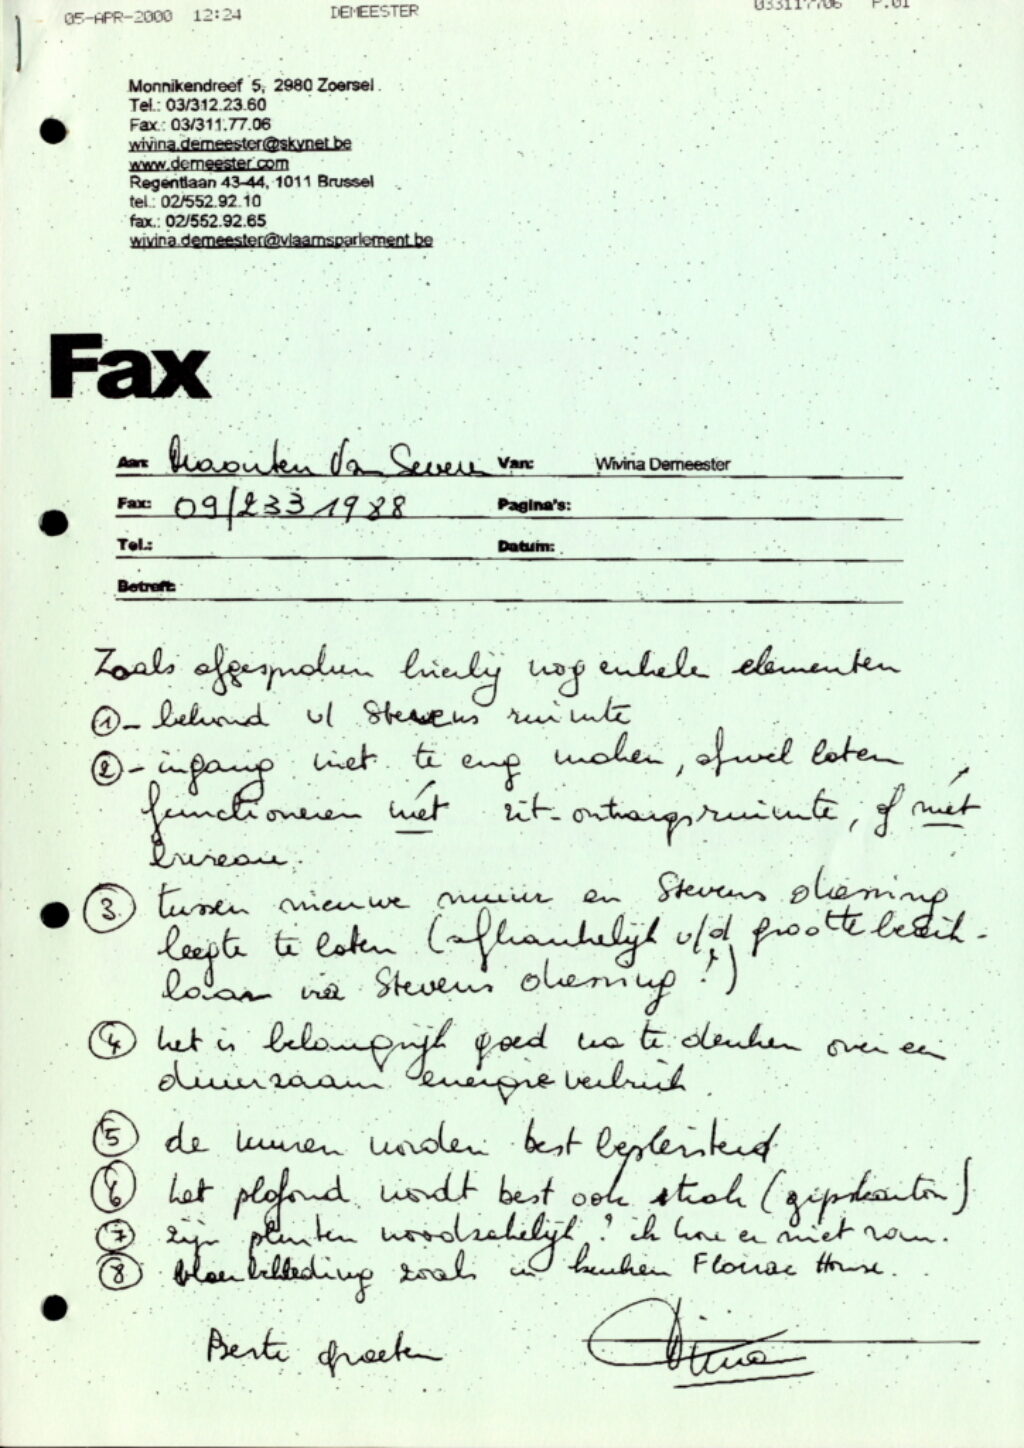 05-APR-2000 12:24 DEMEESTER 033117706 P.01
Monnikendreef 5, 2980 Zoersel.
Tel.: 03/312.23.60
Fax.: 03/311.77.06
wivina.demeester@skynet.be
www.demeester.com
Regentlaan 43-44, 1011 Brussel
tel.: 02/552.92.10
fax.: 02/552.92.65
wivina.demeester@vlaamsparlement.be
Fax
Aan: Maarten Van Severen Van: Wivina Demeester
Fax: 09/2331988 Pagina's:
Tel.: Datum:
Betreft:
Zoals afgesproken hierbij nog enkele elementen
① - behoud v/ Stevens ruimte
② - ingang niet te eng maken, ofwel laten
functioneren mét zit-ontvangsruimte, of mét
bureau.
③ tussen nieuwe muur en Stevens dressing
leegte te laten (afhankelijk v/d grootte bereik-
baar via Stevens dressing!)
④ het is belangrijk goed na te denken over een
duurzaam energieverbruik
⑤ de muren worden best bepleisterd
⑥ het plafond wordt best ook strak (gipskarton)
⑦ zijn plinten noodzakelijk? ik hou er niet van.
⑧ vloerbekleding zoals in keuken Floirac House.
Beste groeten
Wivina